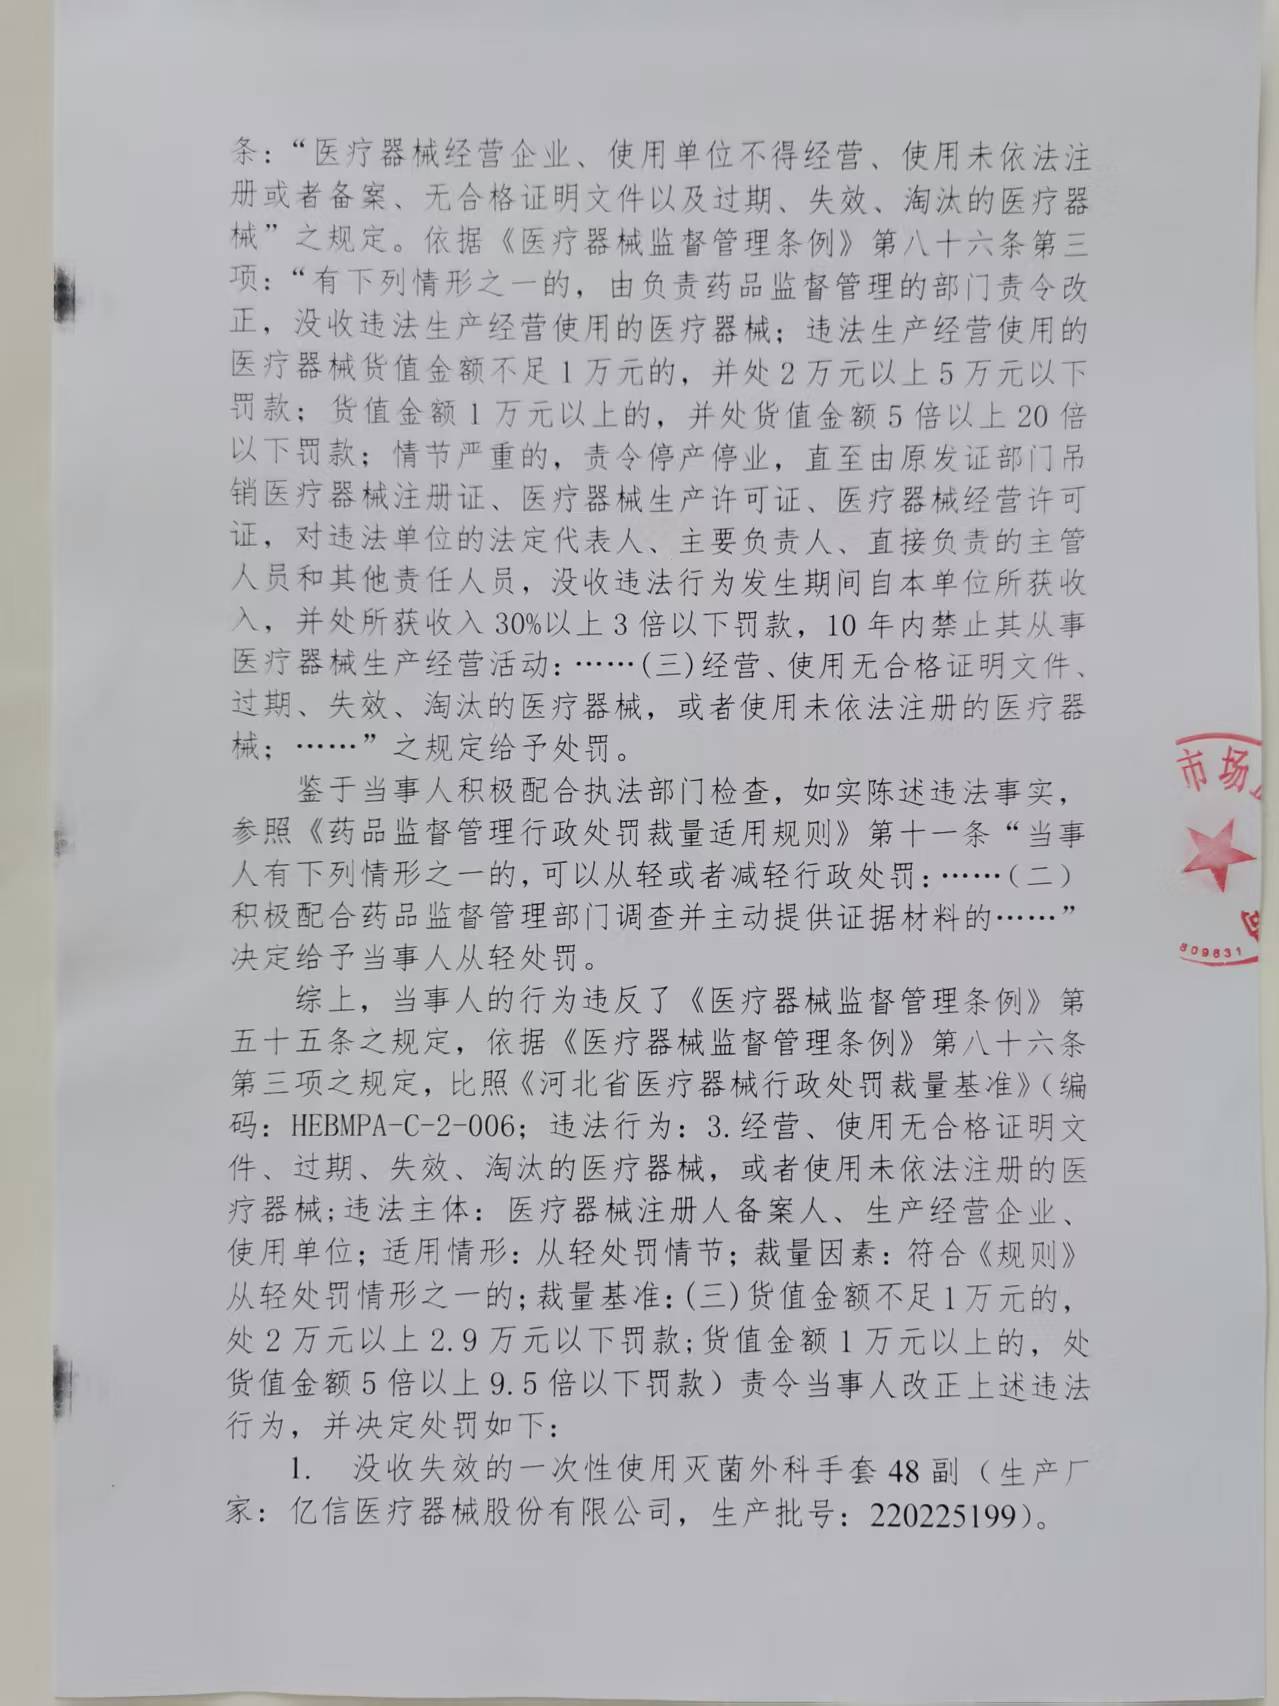 条：“医疗器械经营企业、使用单位不得经营、使用未依法注
册或者备案、无合格证明文件以及过期、失效、淘汰的医疗器
械”之规定。依据《医疗器械监督管理条例》第八十六条第三
项：“有下列情形之一的，由负责药品监督管理的部门责令改
正，没收违法生产经营使用的医疗器械；违法生产经营使用的
医疗器械货值金额不足1万元的，并处2万元以上5万元以下
罚款；货值金额1万元以上的，并处货值金额5倍以上20倍
以下罚款；情节严重的，责令停产停业，直至由原发证部门吊
销医疗器械注册证、医疗器械生产许可证、医疗器械经营许可
证，对违法单位的法定代表人、主要负责人、直接负责的主管
人员和其他责任人员，没收违法行为发生期间自本单位所获收
入，并处所获收入30%以上3倍以下罚款，10年内禁止其从事
医疗器械生产经营活动：……(三)经营、使用无合格证明文件、
过期、失效、淘汰的医疗器械，或者使用未依法注册的医疗器
械；……”之规定给予处罚。
鉴于当事人积极配合执法部门检查，如实陈述违法事实，
参照《药品监督管理行政处罚裁量适用规则》第十一条“当事
人有下列情形之一的，可以从轻或者减轻行政处罚：……（二）
积极配合药品监督管理部门调查并主动提供证据材料的……”
决定给予当事人从轻处罚。
综上，当事人的行为违反了《医疗器械监督管理条例》第
五十五条之规定，依据《医疗器械监督管理条例》第八十六条
第三项之规定，比照《河北省医疗器械行政处罚裁量基准》（编
码：HEBMPA-C-2-006；违法行为：3.经营、使用无合格证明文
件、过期、失效、淘汰的医疗器械，或者使用未依法注册的医
疗器械;违法主体：医疗器械注册人备案人、生产经营企业、
使用单位；适用情形：从轻处罚情节；裁量因素：符合《规则》
从轻处罚情形之一的；裁量基准：(三)货值金额不足1万元的，
处2万元以上2.9万元以下罚款;货值金额1万元以上的，处
货值金额5倍以上9.5倍以下罚款）责令当事人改正上述违法
行为，并决定处罚如下：
1. 没收失效的一次性使用灭菌外科手套48副（生产厂
家：亿信医疗器械股份有限公司，生产批号：220225199）。
市场
809631